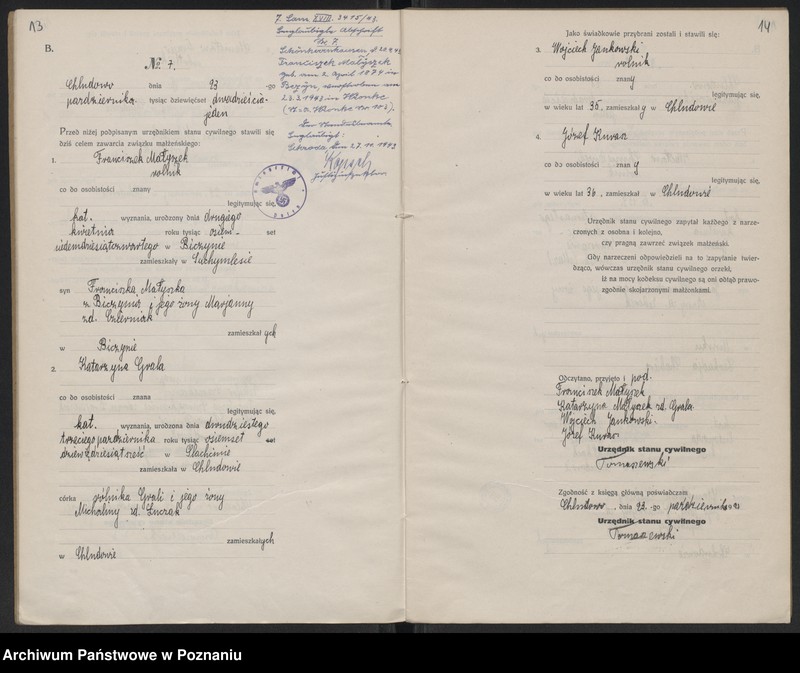 13
B.
№ 7.
Chludowo dnia 23 -go
października tysiąc dziewięćset dwadzieścia-
jeden
Przed niżej podpisanym urzędnikiem stanu cywilnego stawili się
dziś celem zawarcia związku małżeńskiego:
1. Franciszek Małyszek
rolnik
co do osobistości znany
legitymując się,
kat. wyznania, urodzony dnia drugiego
kwietnia roku tysiąc ośm- set
siedemdziesiątczwartego w Biczynie
zamieszkały w Suchymlesie
syn Franciszka Małyszka
z Biczynia i jego żony Marjanny
zd.
zamieszkałych
w Biczynie
2. Katarzyna Grala
co do osobistości znana
legitymując się,
kat. wyznania, urodzona dnia dwudziestego
trzeciego października roku tysiąc osiemset set
dziewiędziesiątsześć w
zamieszkała w Chludowie
córka rólnika Grali i jego żony
Michaliny zd.
zamieszkałych
w Chludowie
7. Sam XVIII. 3415/43.
Beglaubigte Abschrift
Nr. 7.
Franciszek Małyszek
geb. am 2. April 1874 in
verstorben am
1943 in
Beglaubigt:
27. 10. 1943
14
Jako świadkowie przybrani zostali i stawili się:
3. Wojciech Jankowski
rolnik
co do osobistości znany
legitymując się,
w wieku lat 35, zamieszkały w Chludowie
4. Józef
co do osobistości znany
legitymując się,
w wieku lat 36, zamieszkał w Chludowie
Urzędnik stanu cywilnego zapytał każdego z narze-
czonych z osobna i kolejno,
czy pragną zawrzeć związek małżeński.
Gdy narzeczeni odpowiedzieli na to zapytanie twier-
dząco, wówczas urzędnik stanu cywilnego orzekł,
iż na mocy kodeksu cywilnego są oni odtąd prawo-
zgodnie skojarzonymi małżonkami.
Odczytano, przyjęto i pod.
Franciszek Małyszek
Katarzyna Małyszek zd. Grala.
Wojciech Jankowski.
Józef
Urzędnik stanu cywilnego
Tomaszewski
Zgodność z księgą główną poświadczam
Chludowo, dnia 23. -go października
Urzędnik stanu cywilnego
Tomaszewski
Archiwum Państwowe w Poznaniu